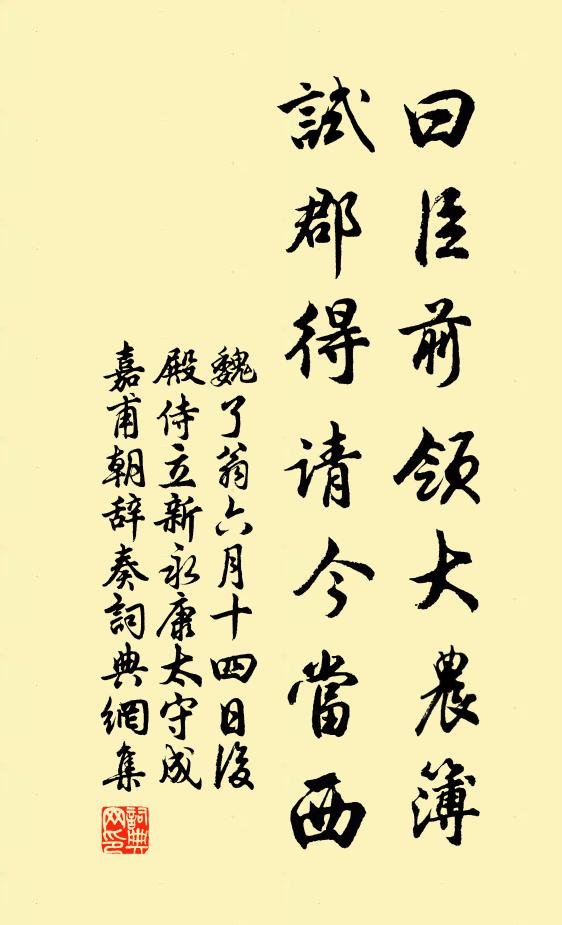 曰臣前领大農簿
試郡得请今當西
魏了翁六月十四日後
殿侍立新永康太守成
嘉甫朝辞奏詞典網集
詞典网印